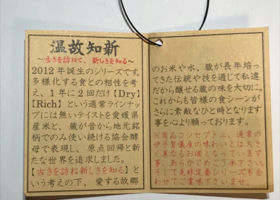 温故知新
～古きを訪ねて、新しきを知る～
2012年誕生のシリーズです。
多様化する食との相性を考
え、1年に2回だけ【Dry】
【Rich】という通常ラインナッ
プには無いテイストを愛媛県
産米と、蔵が昔から地元銘
柄でのみ使い続ける協会酵
母で表現し、原点回帰と新
たな世界を追求しました。
【古きを訪ね新しきを知る】と
いう考えの下、愛する故郷
のお米や水、蔵が長年培っ
てきた伝統や技を通じて私達
だから醸せる蔵の味を大切に。
これからも皆様の食シーンが
さらに素敵なひと時となります
事を心より願っております。